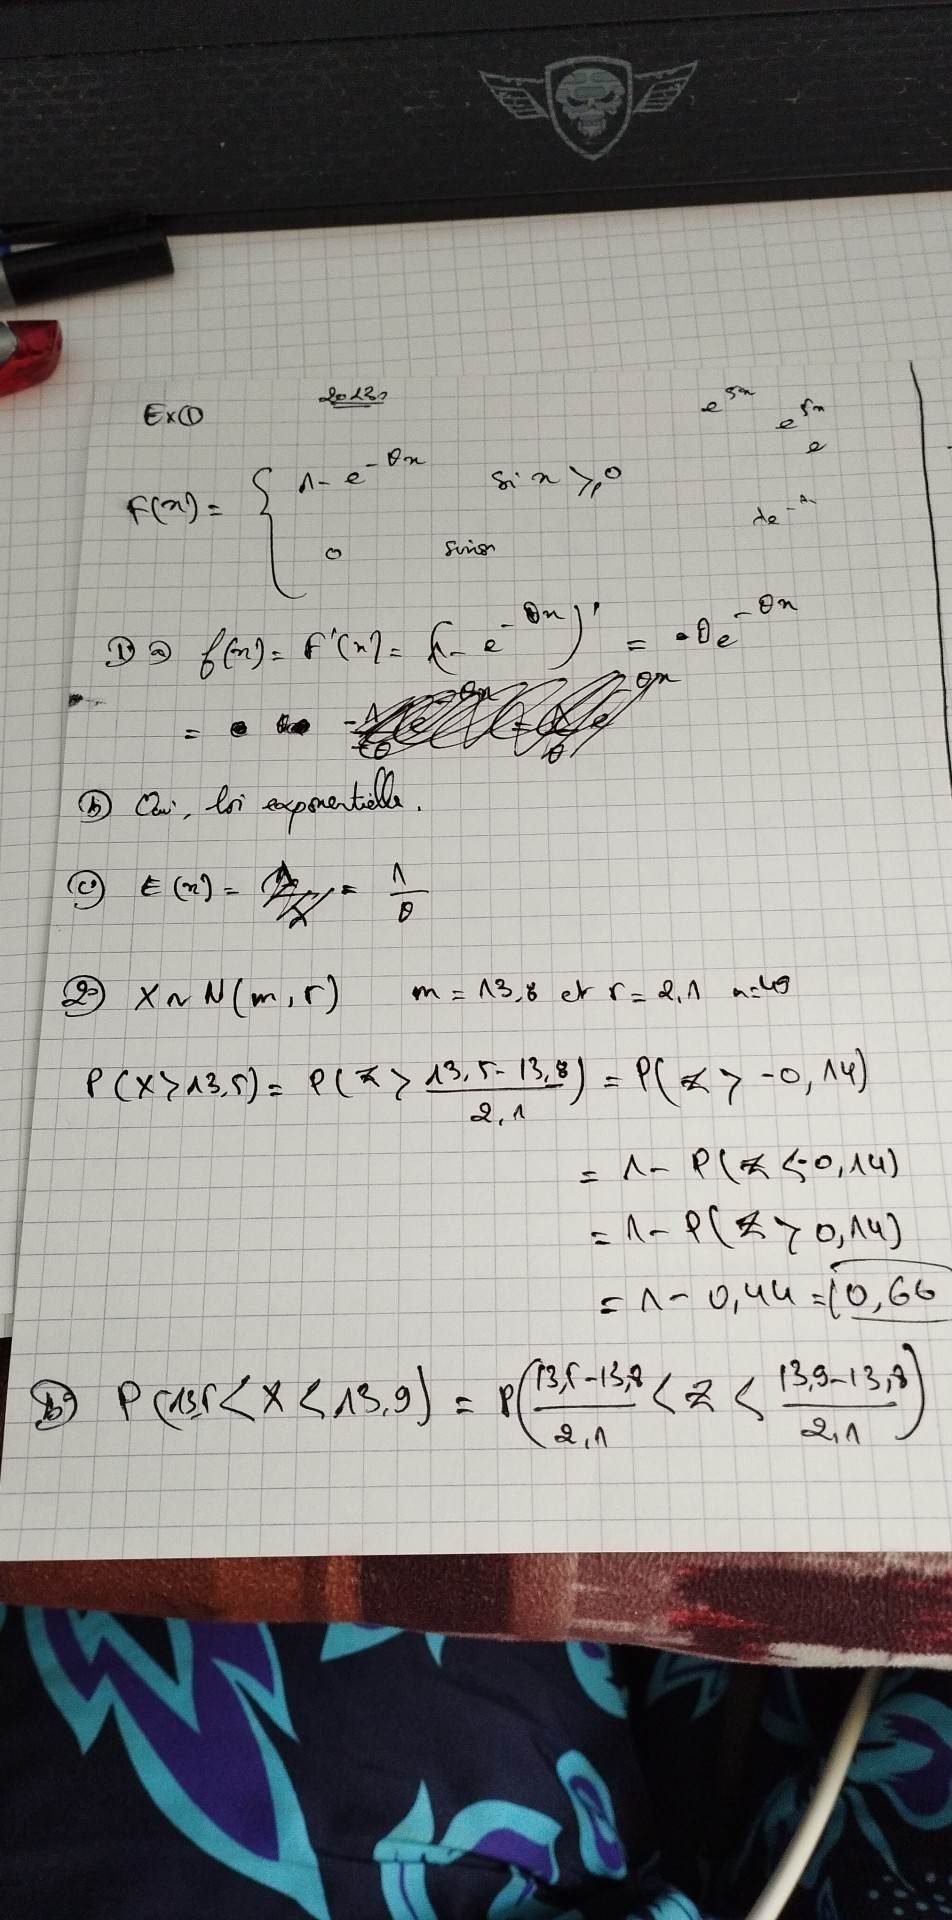 Ex①
e^{5x}
e^{5x}
e
F(x) = { 1 - e^{-θx} si x ≥ 0
0 sinon
λe^{-λ}
1) a) f(x) = F'(x) = (1 - e^{-θx})' = θe^{-θx}
=
b) Oui, loi exponentielle.
c) E(x) = = 1/θ
2) X ~ N(m, σ) m = 13,8 et σ = 2,1 n=49
P(X > 13,5) = P(Z > (13,5 - 13,8)/2,1) = P(Z > -0,14)
= 1 - P(Z ≤ -0,14)
= 1 - P(Z > 0,14)
= 1 - 0,44 = 0,66
b) P(13,5 < X < 13,9) = P((13,5 - 13,8)/2,1 < Z < (13,9 - 13,8)/2,1)